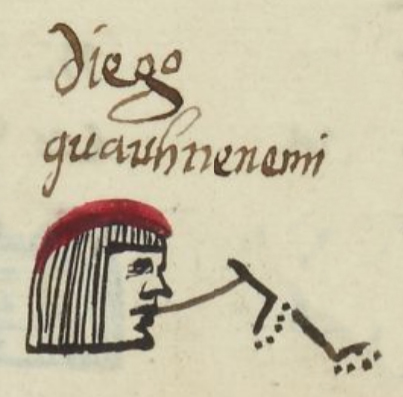 diego
guauhnenemi